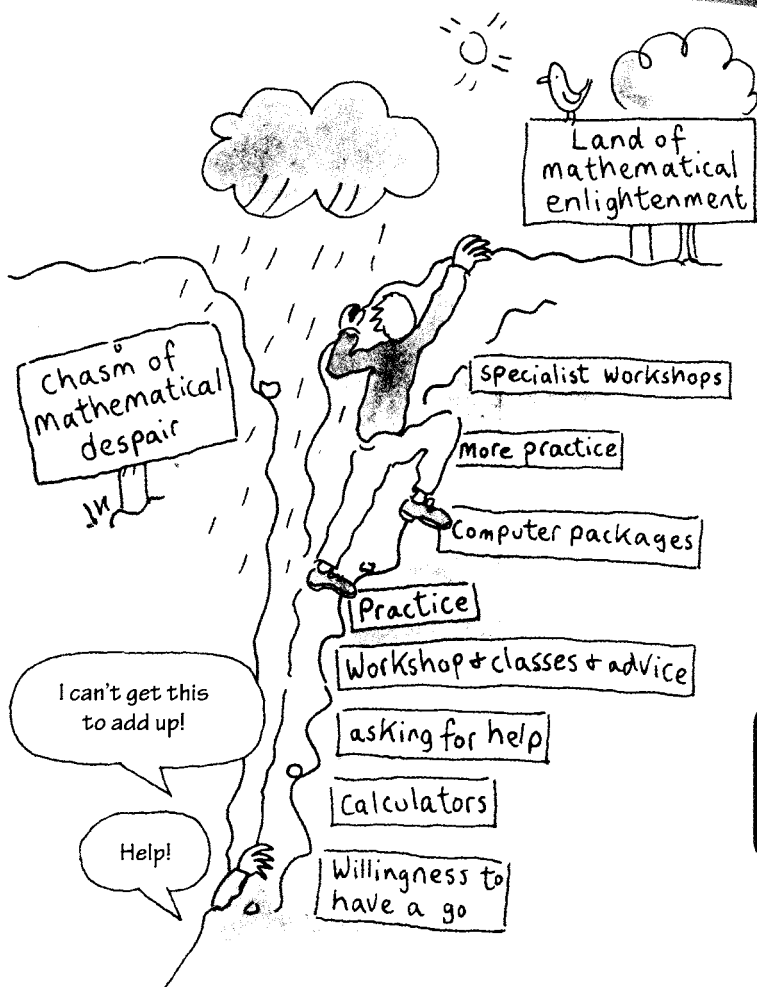 Land of
mathematical
enlightenment
Chasm of
mathematical
despair
specialist workshops
More practice
Computer packages
Practice
Workshop & classes & advice
asking for help
Calculators
Willingness to
have a go
I can't get this
to add up!
Help!